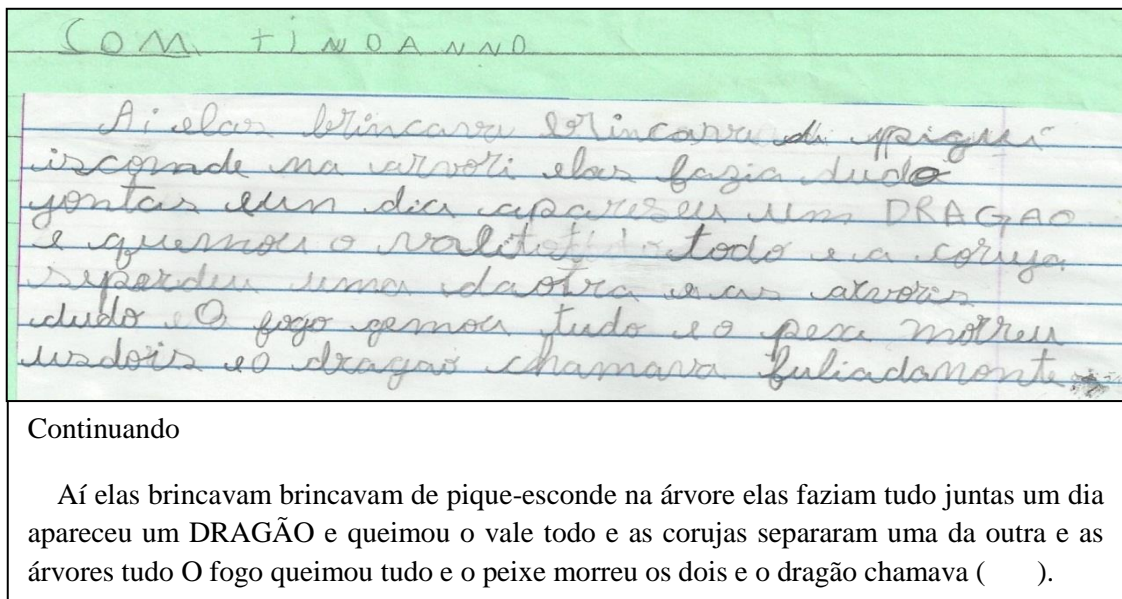 COM TINOANNO
Ai elas brincava brincava di pigui
isconde na arvori elas fazia dudo
gontas eun dia apareseu um DRAGAO
e quemou o valit todo e a coruja
seperdeu uma daotra e as arvoris
dudo O fogo gemou tudo e o pexe morreu
usdois eo dragao chamava fuliadamonte
Continuando
Aí elas brincavam brincavam de pique-esconde na árvore elas faziam tudo juntas um dia
apareceu um DRAGÃO e queimou o vale todo e as corujas separaram uma da outra e as
árvores tudo O fogo queimou tudo e o peixe morreu os dois e o dragão chamava ( ).